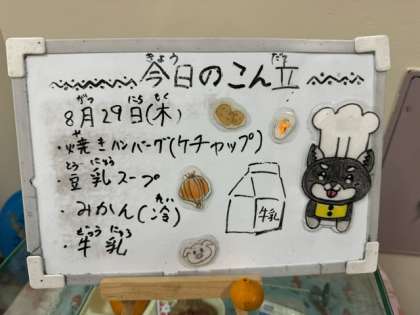 今日のこん立
きょう だて
8月29日(木)
がつ にち もく
・焼きハンバーグ(ケチャップ)
や
・豆乳スープ
とうにゅう
・みかん(冷)
れい
・牛乳
ぎゅうにゅう
牛乳